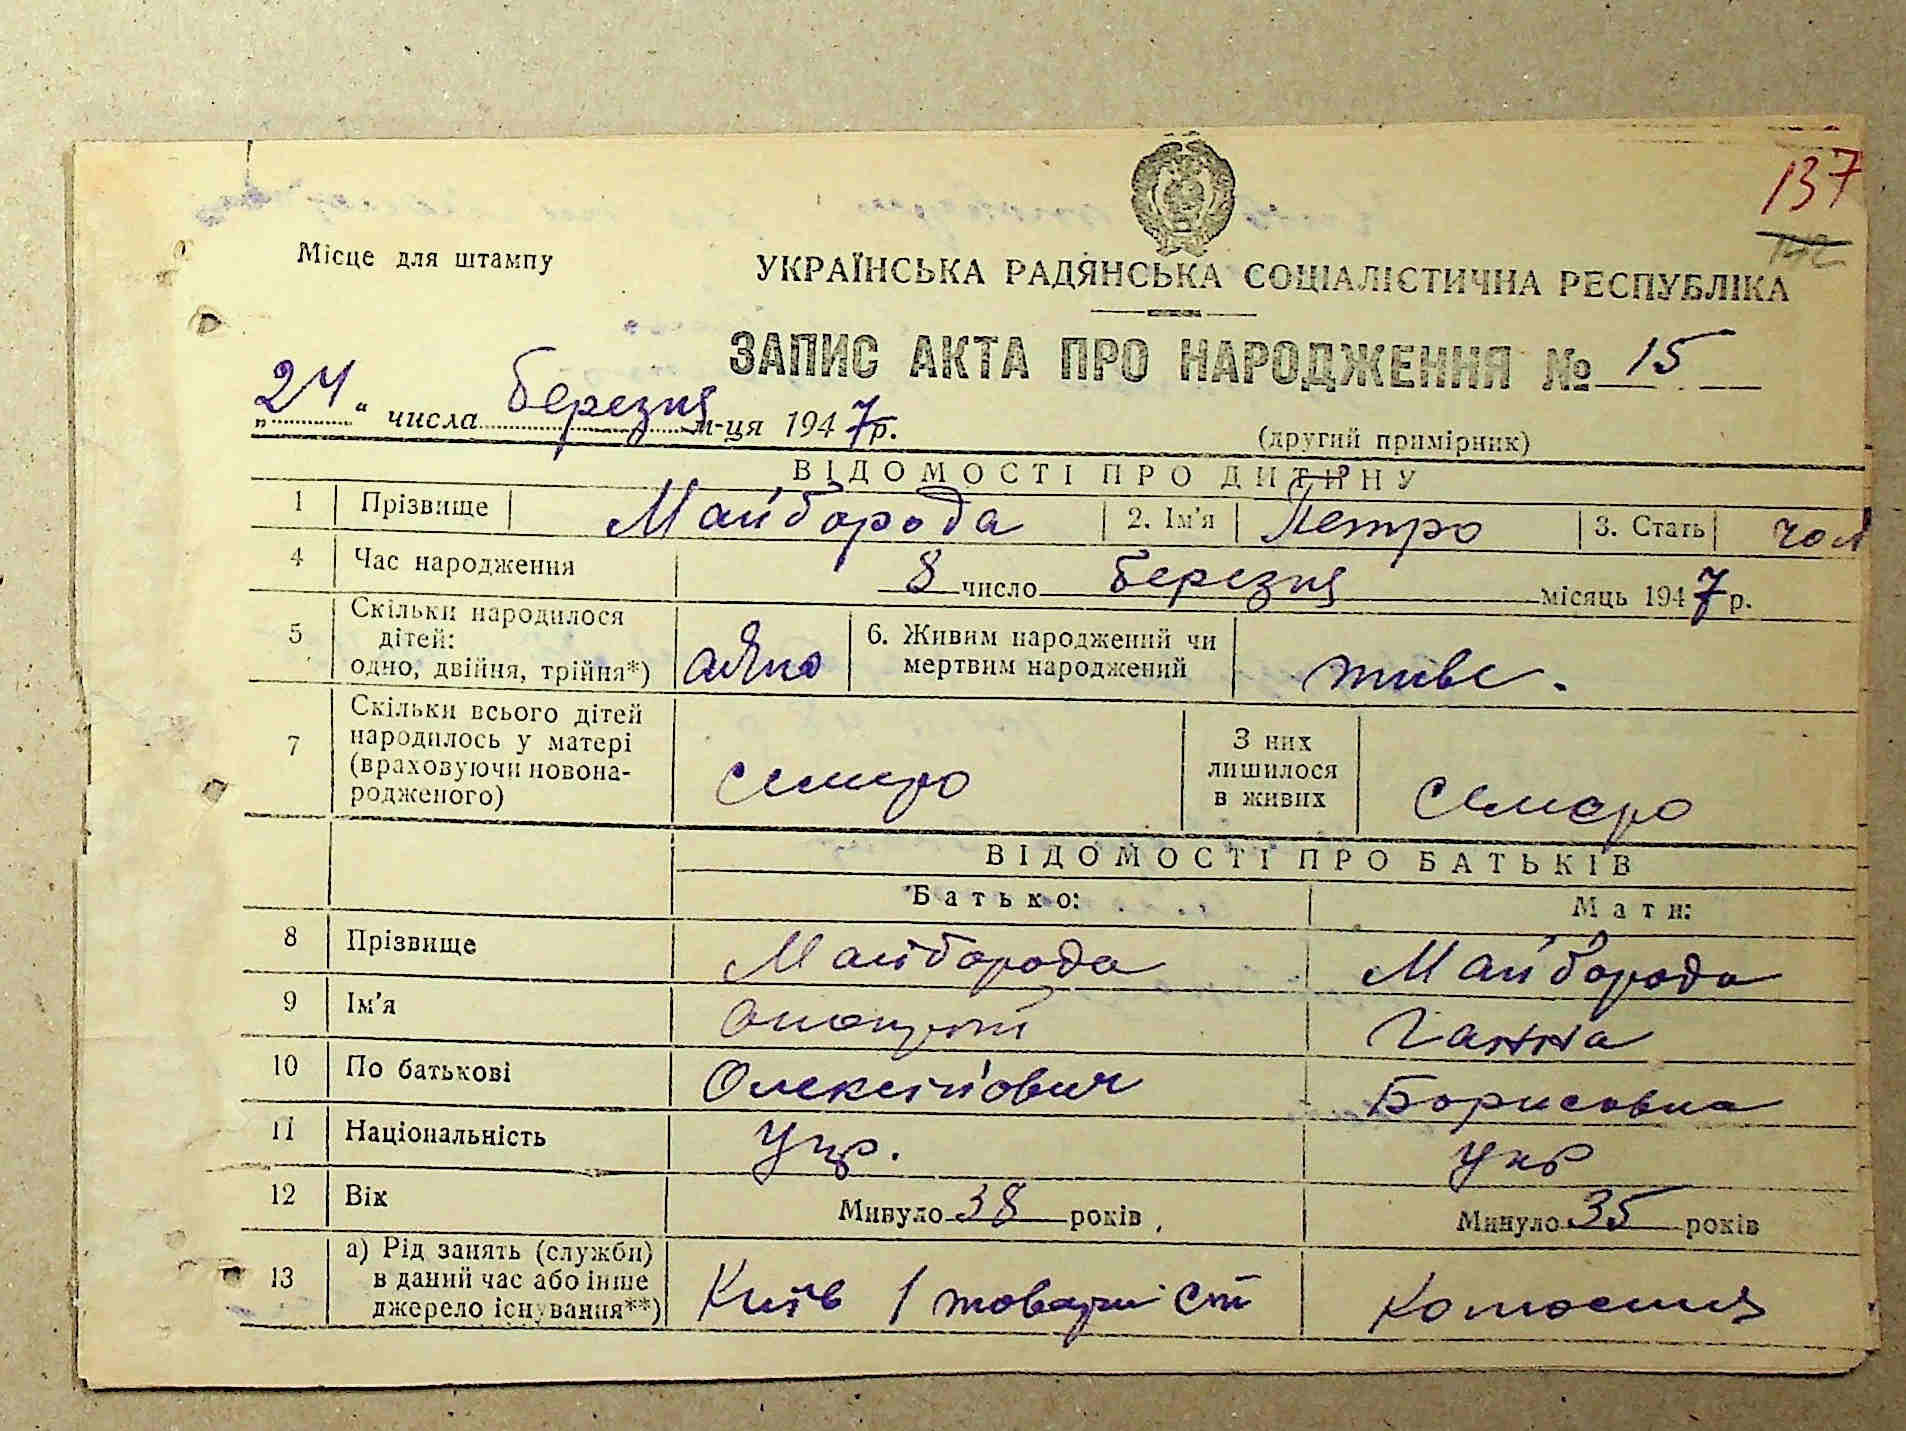 137
Місце для штампу
УКРАЇНСЬКА РАДЯНСЬКА СОЦІАЛІСТИЧНА РЕСПУБЛІКА
ЗАПИС АКТА ПРО НАРОДЖЕННЯ № 15
„24“ числа березня м-ця 1947р.
(другий примірник)
ВІДОМОСТІ ПРО ДИТИНУ
1 Прізвище Майборода 2. Ім'я Петро 3. Стать чол
4 Час народження 8 число березня місяць 1947р.
5 Скільки народилося
дітей:
одно, двійня, трійня*) одно
6. Живим народжений чи
мертвим народжений живе.
7 Скільки всього дітей
народилось у матері
(враховуючи новона-
родженого) семеро
З них
лишилося
в живих семеро
ВІДОМОСТІ ПРО БАТЬКІВ
Батько: Мати:
8 Прізвище Майборода Майборода
9 Ім'я Ганна
10 По батькові Олексійович Борисовна
11 Національність Укр. Укр
12 Вік Минуло 38 років Минуло 35 років
13 а) Рід занять (служби)
в даний час або інше
джерело існування**) Київ 1 товарн ст